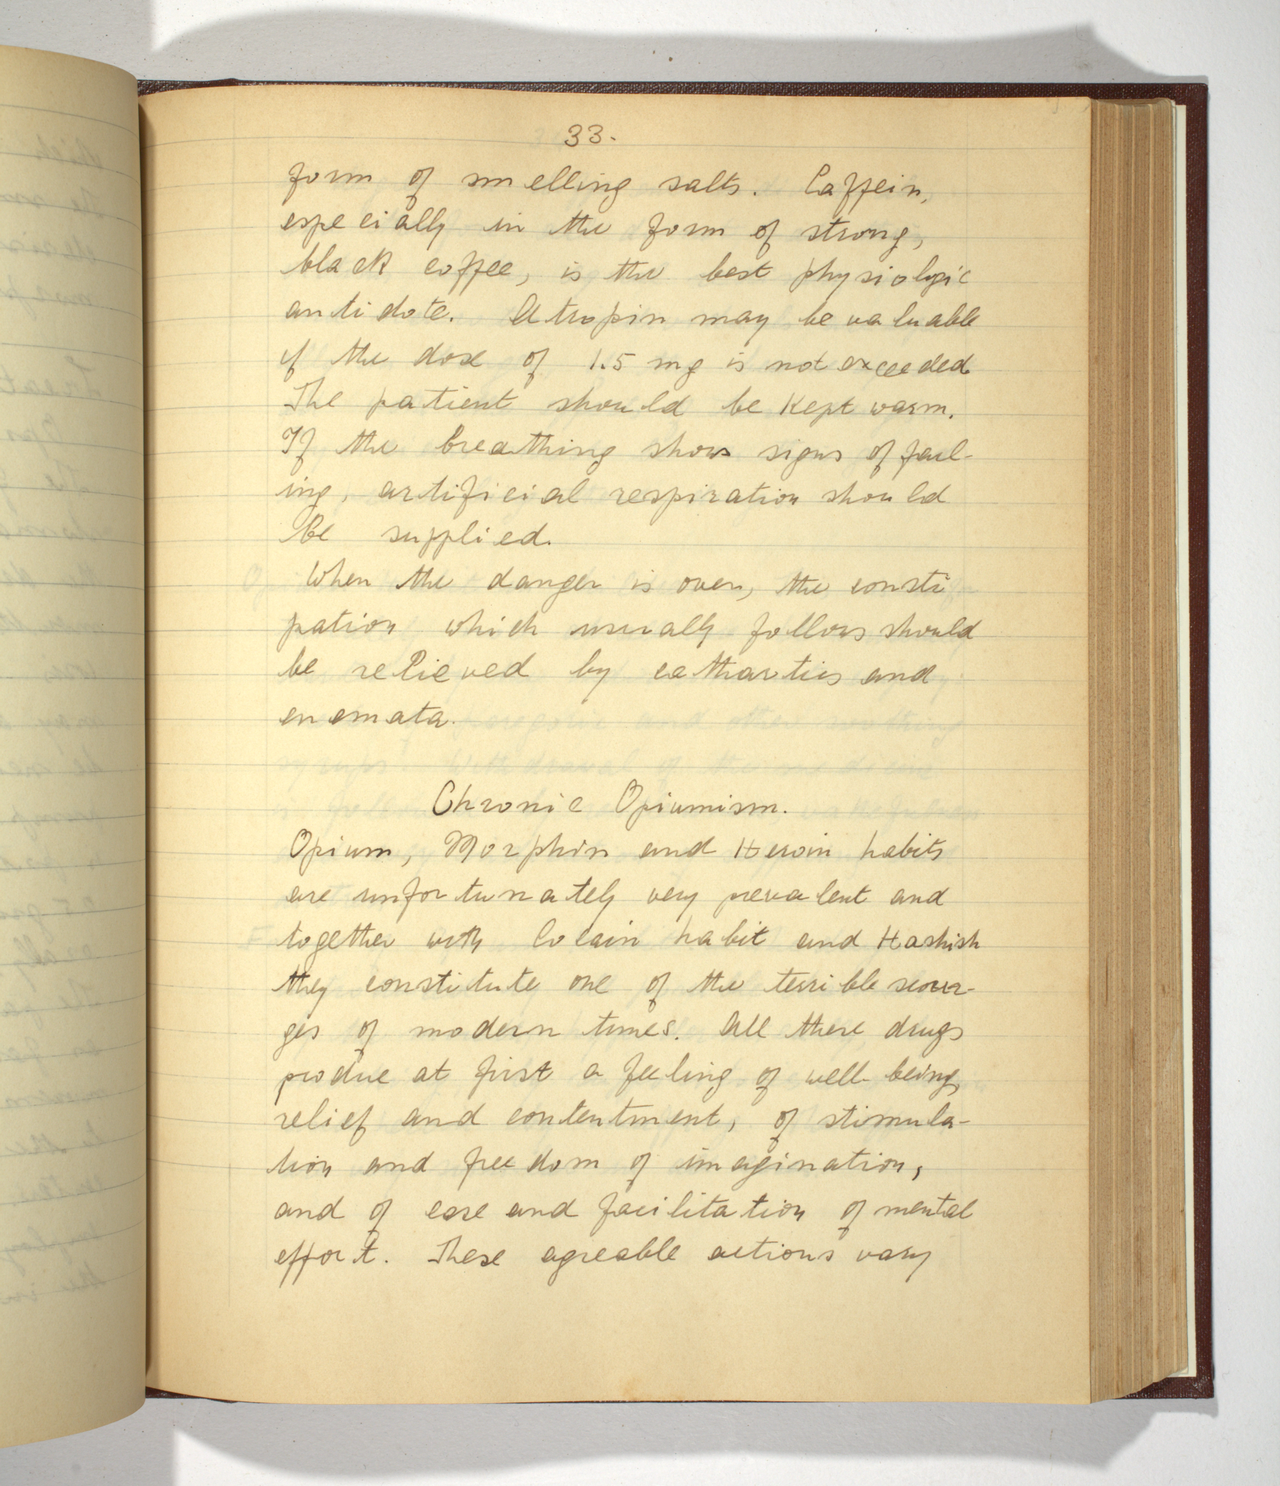 33.
form of smelling salts. Caffein,
especially in the form of strong,
black coffee, is the best physiologic
antidote. Atropin may be valuable
if the dose of 1.5 mg is not exceeded.
The patient should be kept warm.
If the breathing shows signs of fail-
ing, artificial respiration should
be supplied.
When the danger is over, the consti
pation which usually follows should
be relieved by cathartics and
enemata.
Chronic Opiumism.
Opium, Morphin and Heroin habits
are unfortunately very prevalent and
together with Cocain habit and Hashish
they constitute one of the terrible scour-
ges of modern times. All these drugs
produe at first a feeling of well-being,
relief and contentment, of stimula-
tion and freedom of imagination,
and of ease and facilitation of mental
effort. These agreable actions vary